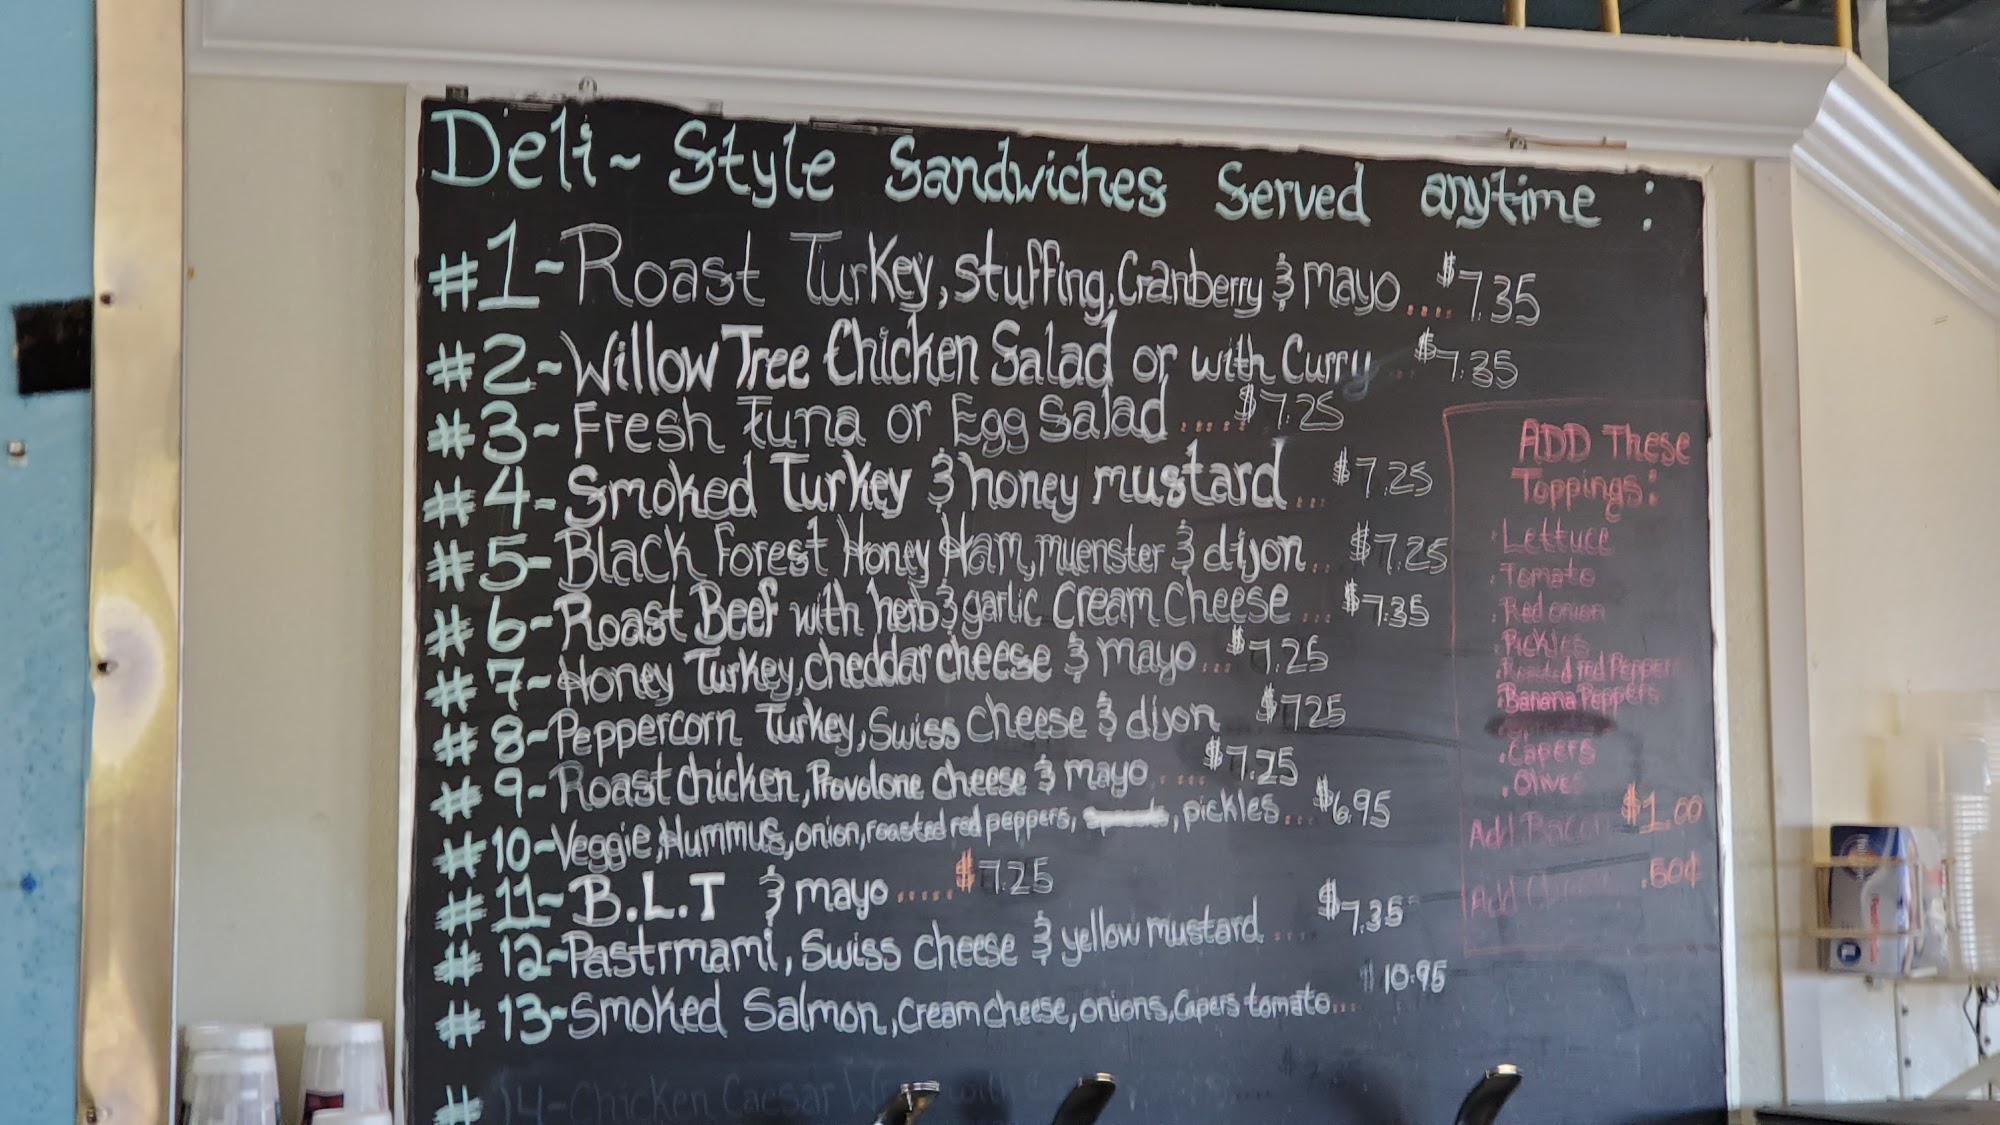 Deli~ Style Sandwiches Served anytime:
#1~Roast Turkey, stuffing, Cranberry & mayo.... $7.35
#2~Willow Tree Chicken Salad or with Curry... $7.35
#3~Fresh tuna or Egg Salad..... $7.25
#4~Smoked Turkey & honey mustard... $7.25
#5~Black Forest Honey Ham, muenster & dijon.. $7.25
#6~Roast Beef with herb & garlic Cream Cheese... $7.35
#7~Honey Turkey, cheddar cheese & mayo... $7.25
#8~Peppercorn Turkey, Swiss cheese & dijon $7.25
#9~Roast chicken, Provolone cheese & mayo.... $7.25
#10~Veggie, Hummus, onion, roasted red peppers, , pickles... $6.95
#11~B.L.T & mayo..... $7.25
#12~Pastrmami, Swiss cheese & yellow mustard.... $7.35
#13~Smoked Salmon, Cream cheese, onions, Capers tomato... $10.95
#14~Chicken Caesar
ADD These
Toppings:
.Lettuce
.Tomato
.Red onion
.Pickles
.Roasted red Peppers
.Banana Peppers
.Capers
.Olives
Add Bacon $1.00
Add .50¢